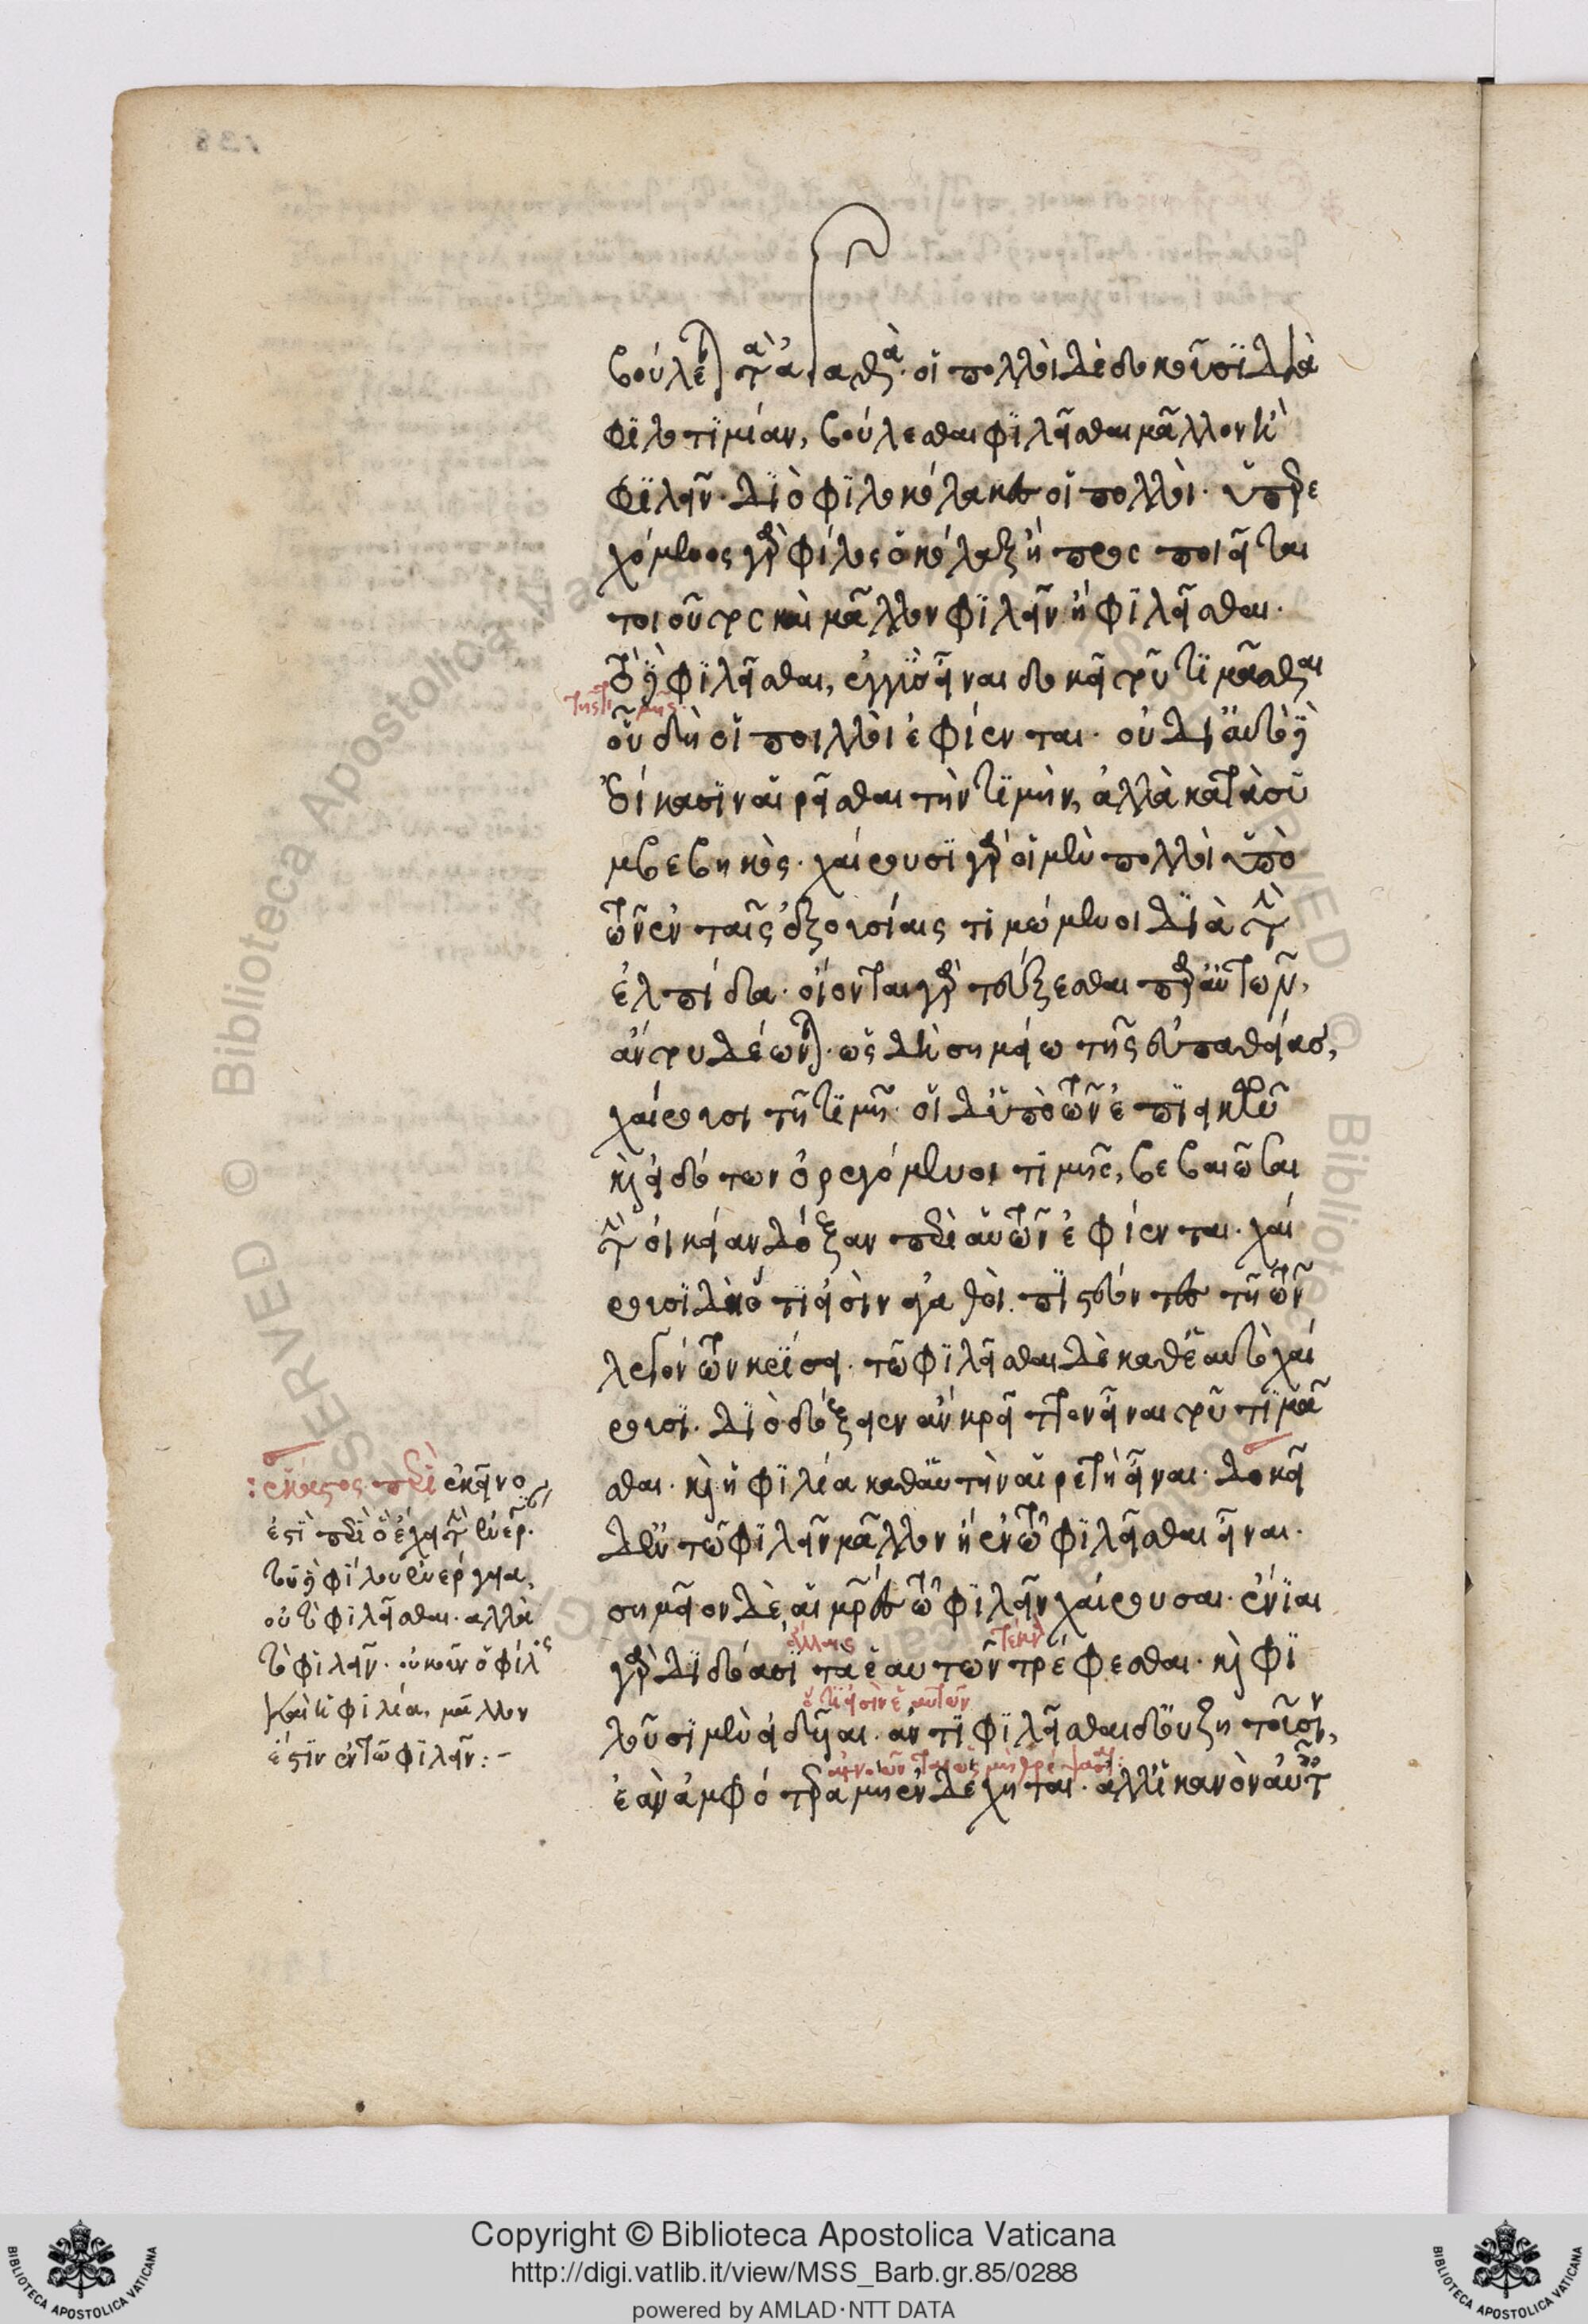 βούλεται τὰ ἀγαθά. οἱ πολλοὶ δὲ δοκοῦσι διὰ
φιλοτιμίαν, βούλεσθαι φιλεῖσθαι μᾶλλον ἢ
φιλεῖν. διὸ φιλοκόλακες οἱ πολλοί. ὑπερε
χόμενος γὰρ φίλος ὁ κόλαξ ἢ προσποιεῖται
τοιοῦτος καὶ μᾶλλον φιλεῖν ἢ φιλεῖσθαι.
τὸ δὲ φιλεῖσθαι, ἐγγὺς εἶναι δοκεῖ τοῦ τιμᾶσθαι
τῆς τιμῆς
οὗ δὴ οἱ πολλοὶ ἐφίενται. οὐ δι' αὑτὸ δ'
ἐοίκασιν αἱρεῖσθαι τὴν τιμὴν, ἀλλὰ κατὰ συ
μβεβηκός. χαίρουσι γὰρ οἱ μὲν πολλοὶ ὑπὸ
τῶν ἐν ταῖς ἐξουσίαις τιμώμενοι διὰ τὴν
ἐλπίδα. οἴονται γὰρ τεύξεσθαι παρ' αὐτῶν,
ἄν του δέωνται. ὡς δὴ σημείῳ τῆς εὐπαθείας,
χαίρουσι τῇ τιμῇ. οἱ δ' ὑπὸ τῶν ἐπιεικῶν
καὶ εἰδότων ὀρεγόμενοι τιμῆς, βεβαιῶσαι
τὴν οἰκείαν δόξαν περὶ αὑτῶν ἐφίενται. χαί
ρουσι δὴ ὅτι εἰσὶν ἀγαθοὶ. πιστεύοντες τῇ τῶν
λεγόντων κρίσει. τῷ φιλεῖσθαι δὲ καθ' ἑαυτὸ χαί
ρουσι. διὸ δόξειεν ἂν κρεῖττον εἶναι τοῦ τιμᾶ
σθαι. καὶ ἡ φιλία καθ' αὑτὴν αἱρετὴ εἶναι. δοκεῖ
δ' ἐν τῷ φιλεῖν μᾶλλον ἢ ἐν τῷ φιλεῖσθαι εἶναι.
σημεῖον δὲ αἱ μητέρες τῷ φιλεῖν χαίρουσαι. ἔνιαι
ἄλλαις τέκνα
γὰρ διδόασι τὰ ἑαυτῶν τρέφεσθαι. καὶ φι
ὅτι εἰσὶν ἑαυτῶν
λοῦσι μὲν εἰδυῖαι. ἀντιφιλεῖσθαι δ' οὐ ζητοῦσιν,
ἐὰν ἀμφότερα μὴ ἐνδέχηται. ἀλλ' ἱκανὸν αὐταῖς
ἕκαστος περὶ ἐκεῖνο
ἐστὶ περὶ ὃ ἔχει τὴν ἐνέργειαν.
τοῦ δὲ φίλου ἐνέργημα,
οὐ τὸ φιλεῖσθαι. ἀλλὰ
τὸ φιλεῖν. οὐκοῦν ὁ φίλος
καὶ ἡ φιλία, μᾶλλον
ἐστὶν ἐν τῷ φιλεῖν: –
Copyright © Biblioteca Apostolica Vaticana
http://digi.vatlib.it/view/MSS_Barb.gr.85/0288
powered by AMLAD·NTT DATA